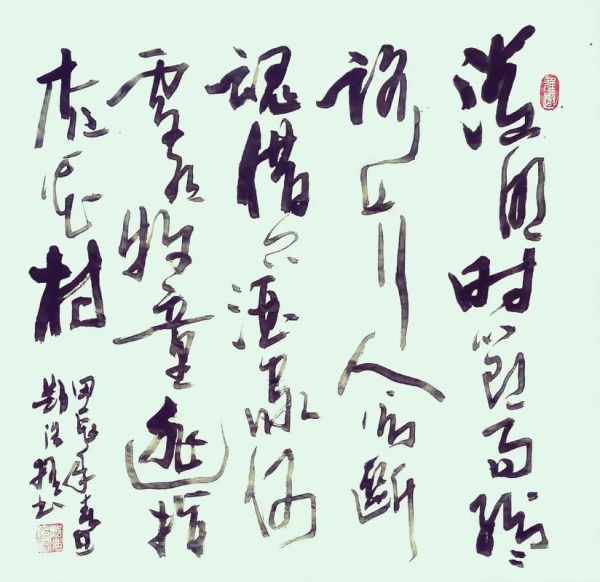 清明时節雨纷々
路上行人欲斷
魂借问酒家何
處有牧童遥指
杏花村
甲辰年春日
书